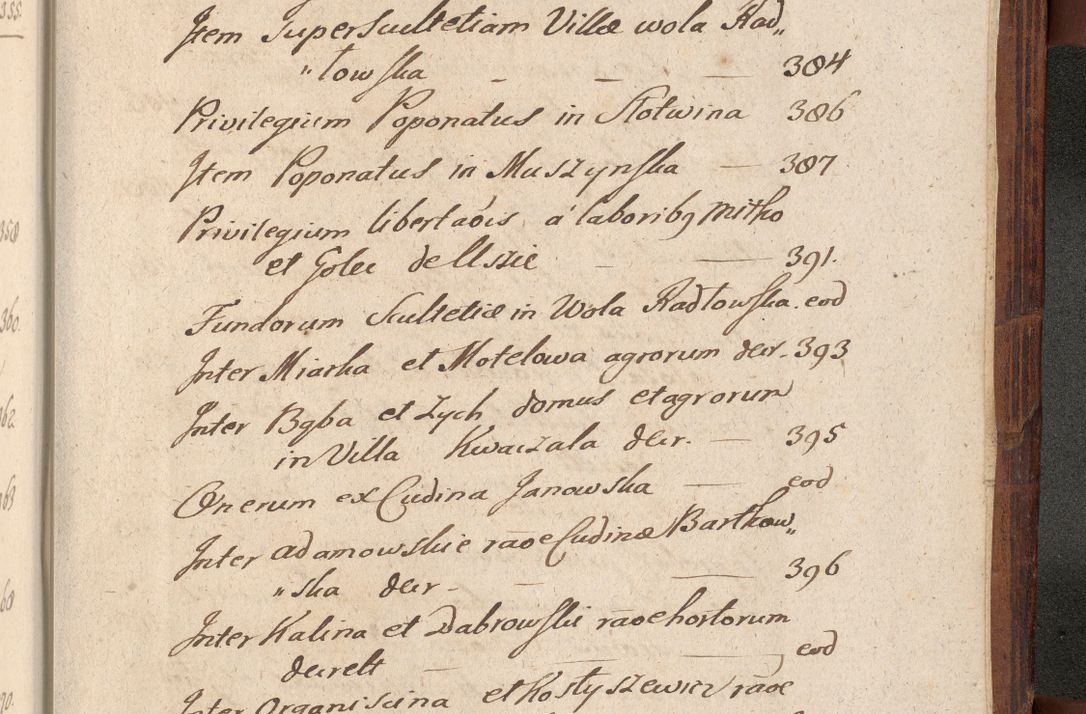 355.
Item Supersculteliam Villæ wola Rad„
„towska - - — 384
Privilegium Poponatus in Słotwina 386
Item Poponatus in Muszynska — 387
Privilegium libertaōis á laboribꝫ Mitko
et Golec de Uszie - — 391.
Fundorum Scultetiæ in Wola Radłowska. eod
Inter Miarka et Motelowa agrorum decr. 393
Inter Bgba et Zych domus et agrorum
in Villa Kwaczala decr. — 395
Onerum ex Cudina Janowska — eod
Inter Adamowskie rāoe Cudinæ Bartkow„
„ska decr - — 396
Inter Kalina et Dabrowski rāoe hortorum
decrett - — eod
Inter Organiscina et Kostyszewicz rāoe
358
360.
362.
363
368
370.